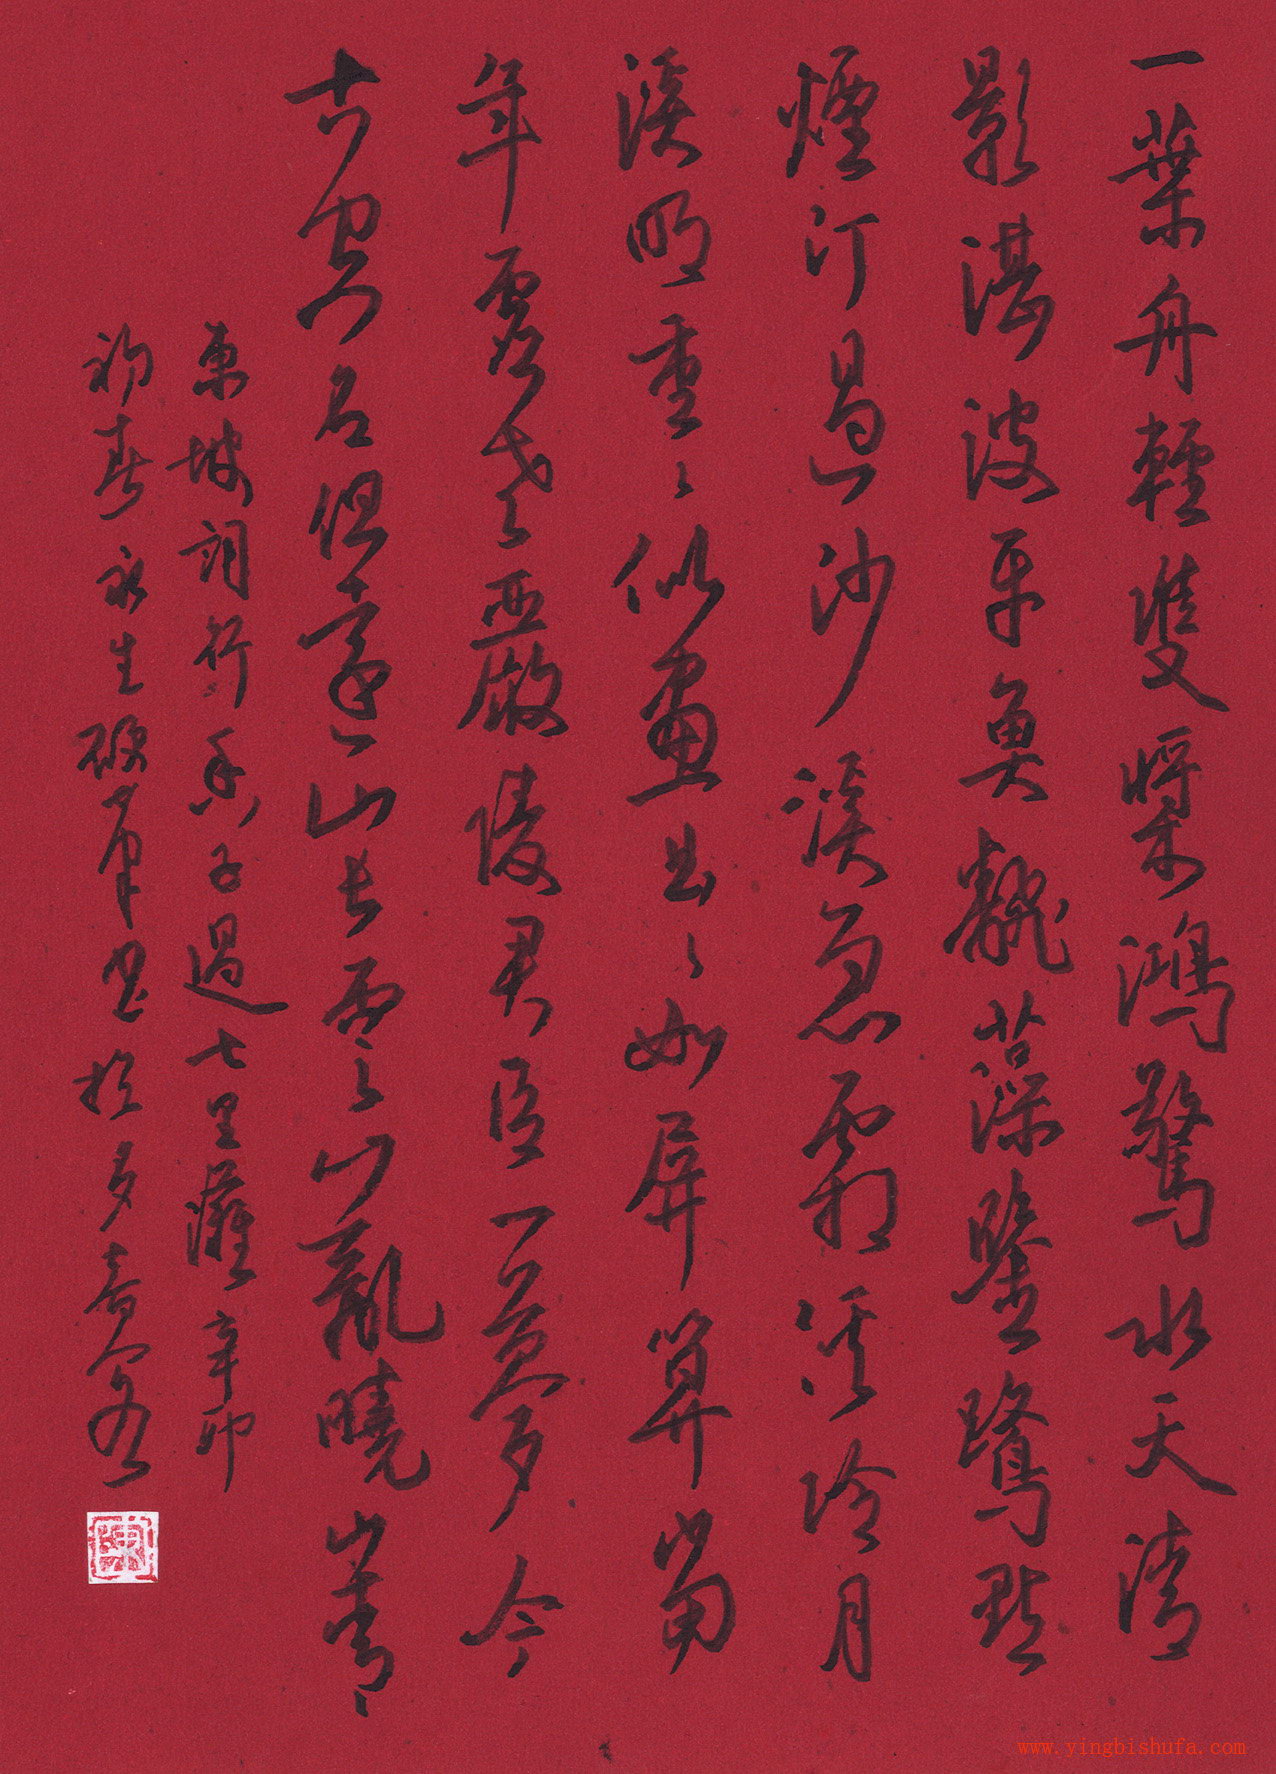 一葉舟輕雙槳鴻驚水天清
影湛波平魚翻藻鑒鷺點
煙汀過沙溪急霜溪冷月
溪明重〻似畫曲〻如屏算當
年虛老嚴陵君臣一夢今
古空名但遠山長雲山亂曉山青
東坡詞行香子過七里灘辛卯
初春永生硬筆書於多
陳
www.yingbishufa.com